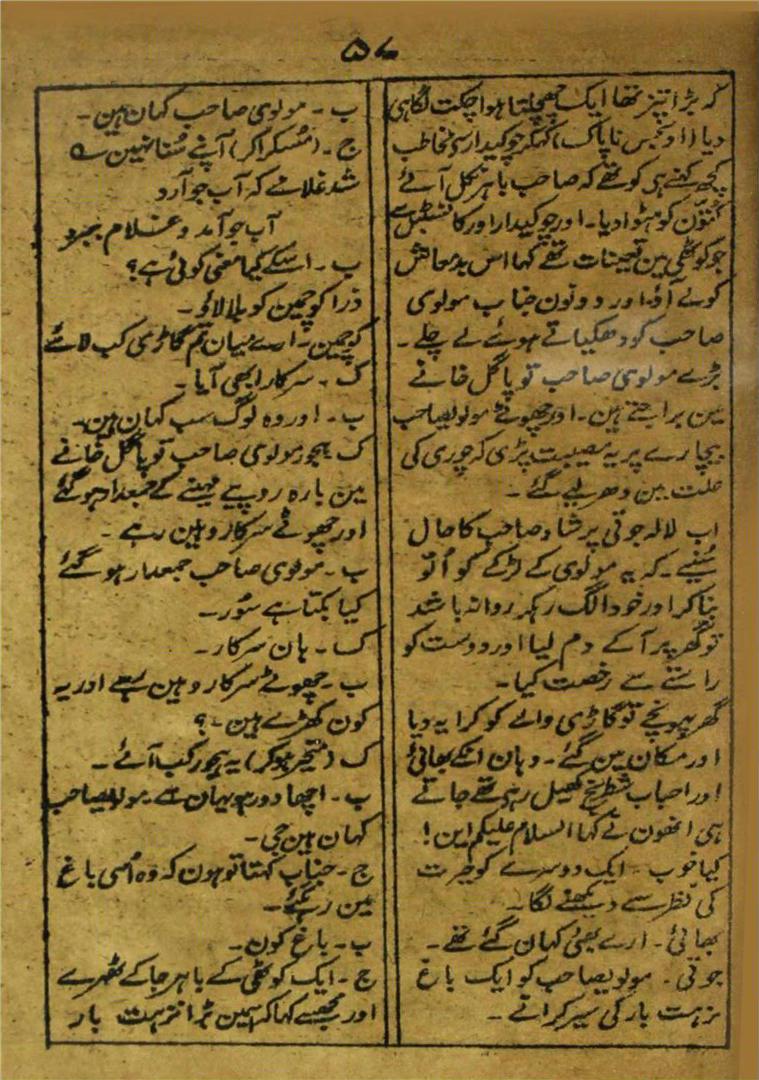 ۵۷
کہ بڑا تیز تھا ایک چھچلتا ہوا چکت لگا ہی
دیا (او نجس ناپاک) کہکر چوکیدار سے مخاطب
کچھ کہنے ہی کو تھے کہ صاحب باہر نکل آئے
کتون کو ہٹوا دیا۔ اور چوکیدار اور کانسٹبل سے
جو کوٹھی مین تعینات تھے کہا اس بدمعاش
کو لے آؤ اور دونون جناب مولوی
صاحب کو دھکیاتے ہوئے لے چلے۔
بڑے مولوی صاحب تو پاگل خانے
مین براجتے ہین۔ اور چھوٹے مولویصاحب
بیچارے پر یہ مصیبت پڑی کہ چوری کی
علت مین دھر لیے گئے۔
اب لالہ جوتی پرشاد صاحب کا حال
سُنیے۔ کہ یہ مولوی کے لڑکے کو اُلو
بنا کر اور خود الگ رہکر روانہ باشد
تو گھر پر آکے دم لیا اور دوست کو
راستے سے رخصت کیا۔
گھر پہونچے تو گاڑی والے کو کرایہ دیا
اور مکان مین گئے۔ وہان انکے بھائی
اور احباب شطرنج کھیل رہے تھے جاتے
ہی انھون نے کہا السلام علیکم این!
کیا خوب۔ ایک دوسرے کو حیرت
کی نظر سے دیکھنے لگا۔
بھائی۔ ارے بھئی کہان گئے تھے۔
جوتی۔ مولویصاحب کو ایک باغ
نزہت بار کی سیر کراتے۔
ب۔ مولوی صاحب کہان ہین۔
ج۔ (مسکرا کر) آپنے سُنا نہین ؎
شد غلامے کہ آب جو آرد
آب جو آمد و غلام ببرد
ب۔ اسکے کیا معنی کوئی ہے؟
ذرا کوچمین کو بلا لائو۔
کوچمین۔ ارے میان تم گاڑی کب لائے
ک۔ سرکار ابھی آیا۔
ب۔ اور وہ لوگ سب کہان ہین۔
ک ہجور مولوی صاحب تو پاگل خانے
مین بارہ روپیے مہینے کے جمعدار ہو گئے
اور چھوٹے سرکار وہین رہے۔
ب۔ مولوی صاحب جمعدار ہو گئے
کیا بکتا ہے سُور۔
ک۔ ہان سرکار۔
ب۔ چھوٹے سرکار وہین رہے اور یہ
کون کھڑے ہین۔؟
ک (متحیر ہوکر) یہ ہجور کب آئے۔
ب۔ اچھا دور ہو یہان سے۔ مولویصاحب
کہان ہین جی۔
ج۔ جناب کہتا تو ہون کہ وہ اُسی باغ
مین رہ گئے۔
ب۔ باغ کون۔
ج۔ ایک کوٹھی کے باہر جا کے ٹھہرے
اور مجھسے کہا کہ اسمین بڑا نزہت بار